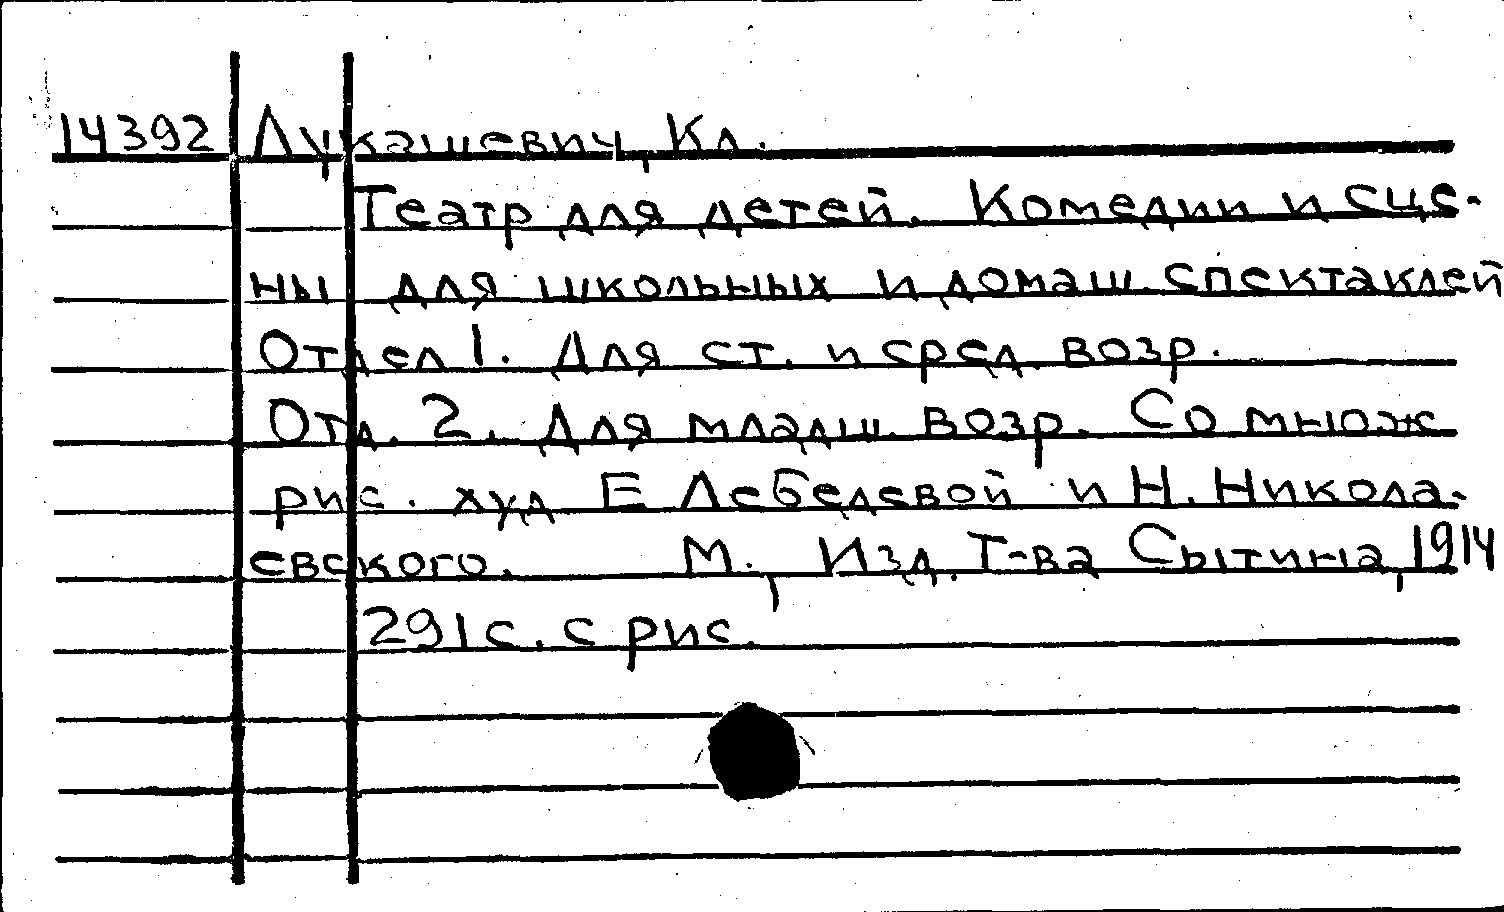 14392 Лукашевич, Кл.
Театр для детей. Комедии и сце-
ны для школьных и домаш. спектаклей
Отдел 1. Для ст. и сред. возр.
Отд. 2. Для младш. возр. Со множ
рис. худ Е Лебедевой и Н. Никола-
евского. М., Изд. Т-ва Сытина, 1914
291 с. с рис.